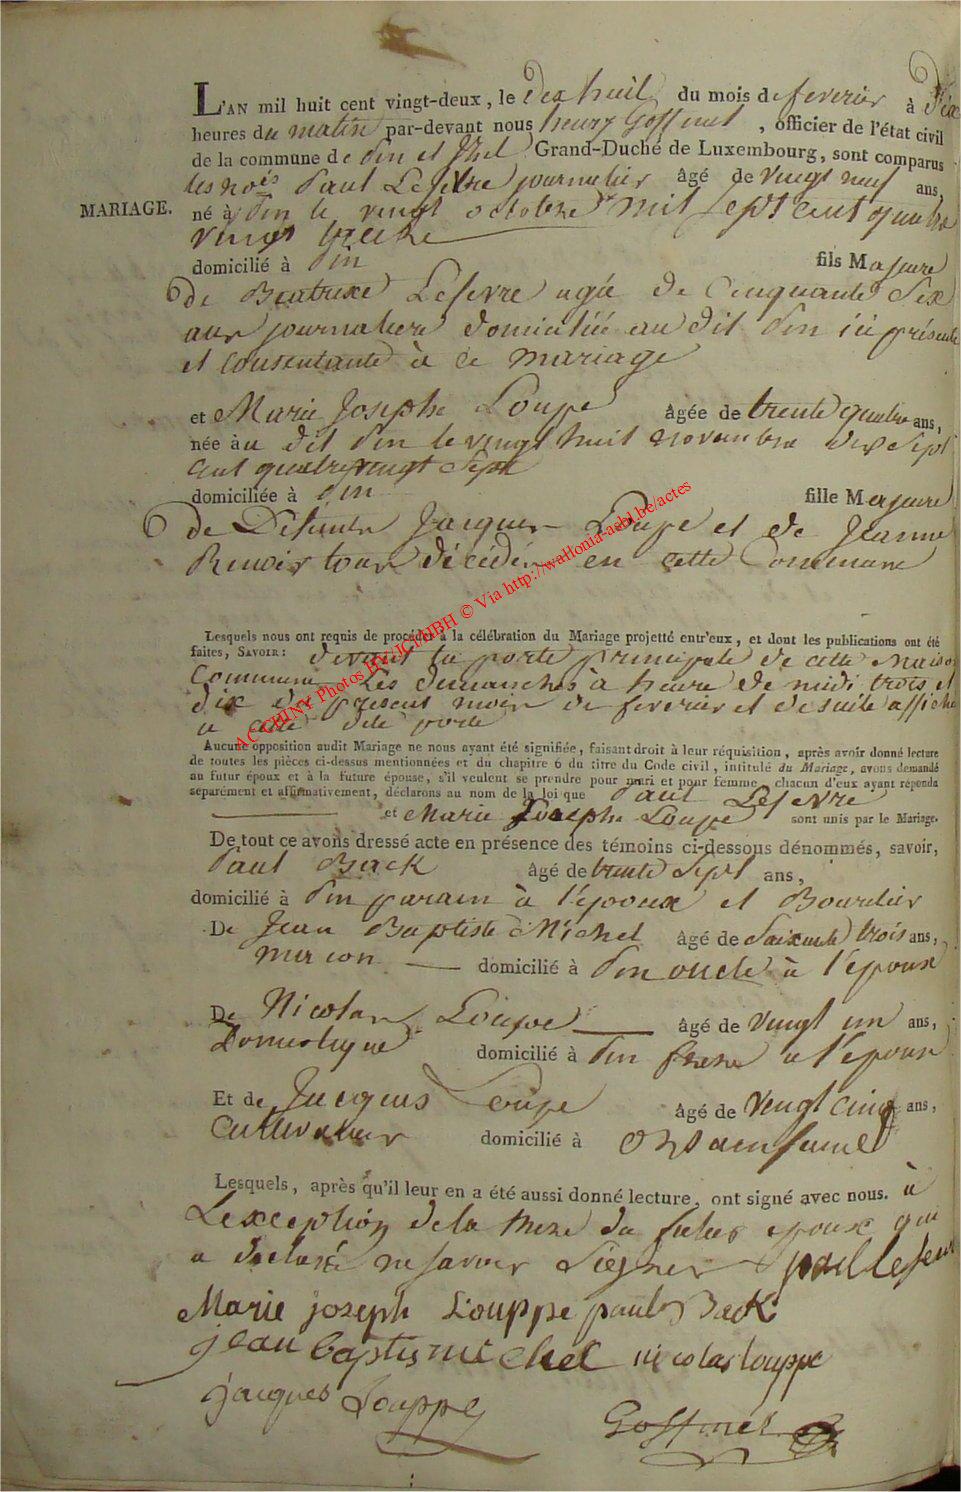 L'AN mil huit cent vingt-deux, le dix huit du mois de fevrier à dix
heures du matin par-devant nous henry Goffinet, officier de l'état civil
de la commune de Pin et Izel Grand-Duché de Luxembourg, sont comparus
les noés Paul Lefevre journalier âgé de vingt neuf ans,
MARIAGE. né à Pin le vingt octobre mil sept cent quatre
vingt treize
domicilié à Pin fils Majeure
de Beatrixe Lefevre agée de Cinquante Six
ans journaliere domiciliée au dit Pin ici présente
et consentante à ce mariage
et Marie Josephe Loupe âgée de trente quatre ans,
née à u dit Pin le vingt huit novembre dix sept
cent quatre vingt sept
domiciliée à Pin fille Majeure
de Défunts Jacques Loupe et de Jeanne
tous décédés en cette Commune
Lesquels nous ont requis de procéder à la célébration du Mariage projetté entr'eux, et dont les publications ont été
faites, SAVOIR: devant la porte principale de cette Maison
Commune Les dimanches à heure de midi trois et
dix du présent mois de fevrier et de suite affiché
a cette dite porte
Aucune opposition audit Mariage ne nous ayant été signifiée, faisant droit à leur réquisition, après avoir donné lecture
de toutes les pièces ci-dessus mentionnées et du chapitre 6 du titre du Code civil, intitulé du Mariage, avons demandé
au futur époux et à la future épouse, s'il veulent se prendre pour mari et pour femme, chacun d'eux ayant répondu
séparément et affirmativement, déclarons au nom de la loi que Paul Lefevre
et Marie Josephe Loupe sont unis par le Mariage.
De tout ce avons dressé acte en présence des témoins ci-dessous dénommés, savoir,
Paul Back âgé de trente Sept ans,
domicilié à Pin parain à l'époux et Bourelier
De Jean Baptiste Michel âgé de Soixante trois ans,
domicilié à Pin oncle à l'époux
De Nicolas Loupe âgé de vingt un ans,
Domestique domicilié à Pin frere a l'epouse
Et de Jacques Loupe âgé de vingt cinq ans,
Cultivateur domicilié à
Lesquels, après qu'il leur en a été aussi donné lecture, ont signé avec nous. à
L'exception de la mere du futur epoux qui
a declaré ne savoir Signer paul lefevre
Marie joseph Louppe paul Back
jean baptis michel nicolas louppe
jacques Louppe
Goffinet
AC CHINY Photos BW/JCI/HBH © Via http://wallonia-asbl.be/actes